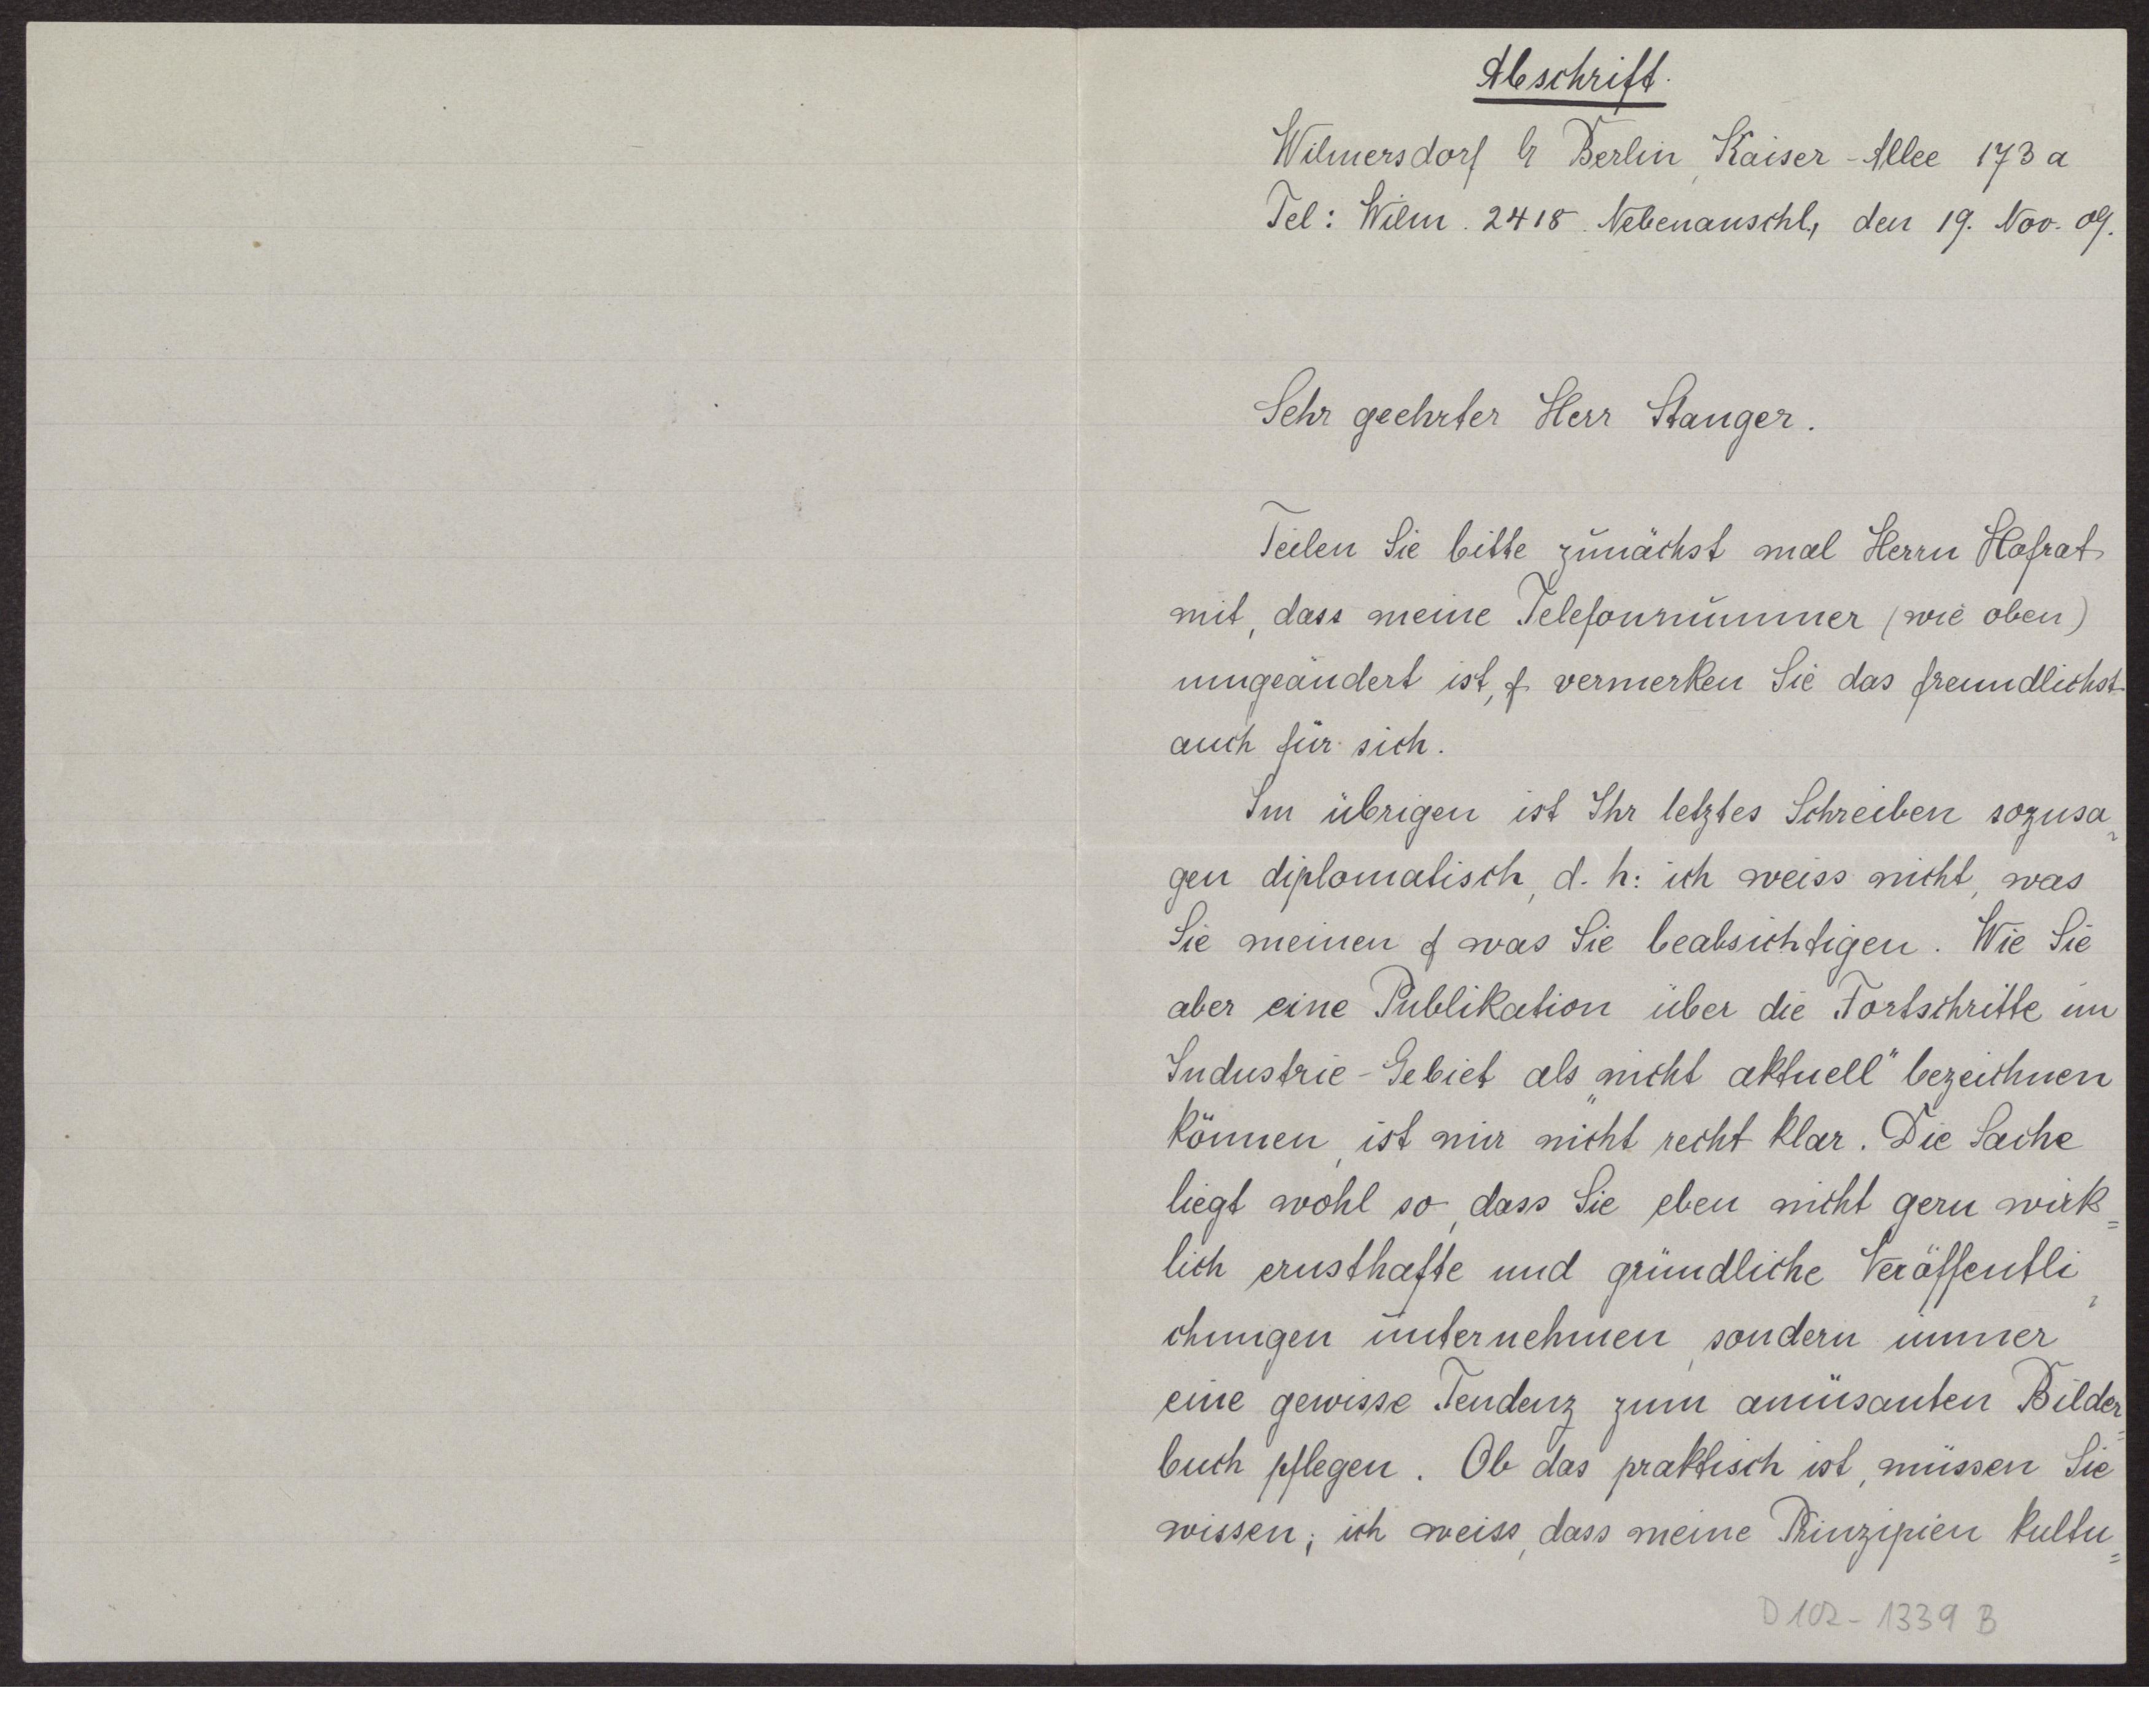 Abschrift.
Wilmersdorf b Berlin, Kaiser-Allee 173a
Tel: Wilm. 2418. Nebenanschl., den 19. Nov. 09.
Sehr geehrter Herr Stanger.
Teilen Sie bitte zunächst mal Herrn Hofrat
mit, dass meine Telefonnummer (wie oben)
umgeändert ist, & vermerken Sie das freundlichst
auch für sich.
Im übrigen ist Ihr letztes Schreiben sozusa-
gen diplomatisch, d. h: ich weiss nicht, was
Sie meinen & was Sie beabsichtigen. Wie Sie
aber eine Publikation über die Fortschritte im
Industrie-Gebiet als „nicht aktuell" bezeichnen
können, ist mir nicht recht klar. Die Sache
liegt wohl so, dass Sie eben nicht gern wirk=
lich ernsthafte und gründliche Veröffentli-
chungen unternehmen, sondern immer
eine gewisse Tendenz zum amüsanten Bilder=
buch pflegen. Ob das praktisch ist, müssen Sie
wissen; ich weiss, dass meine Prinzipien kultu=
D 102-1339 B